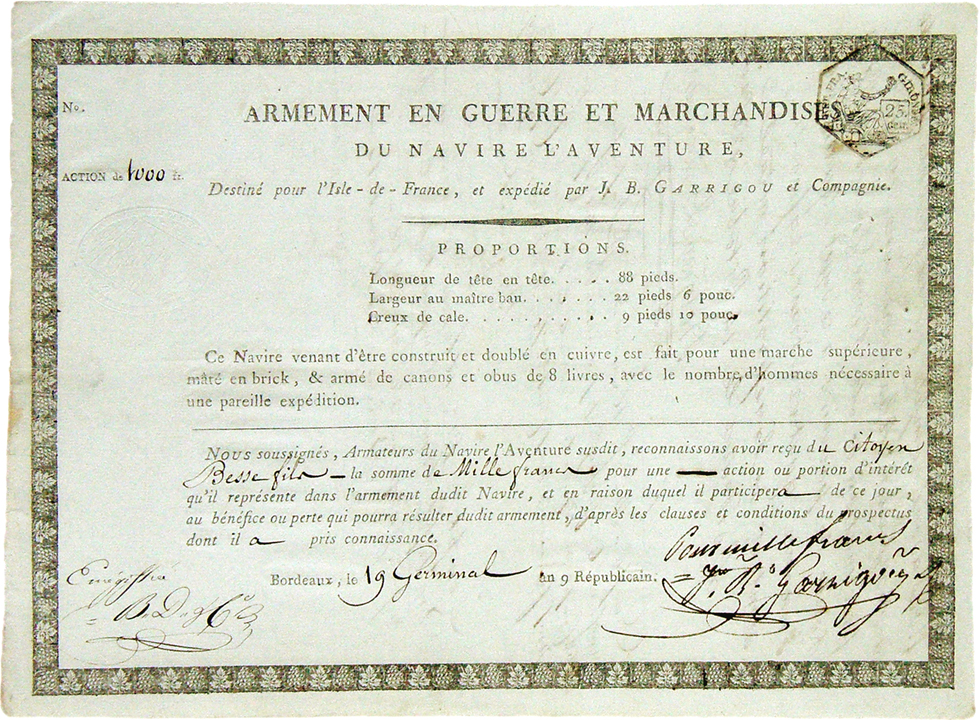 No.
ARMEMENT EN GUERRE ET MARCHANDISES
DU NAVIRE L'AVENTURE,
ACTION de 1000 fr.
Destiné pour l'Isle-de-France, et expédié par J. B. GARRIGOU et Compagnie.
GIRONDE
25
CEN.
PROPORTIONS.
Longueur de tête en tête. . . . . 88 pieds.
Largeur au maître bau. . . . . . 22 pieds 6 pouc.
Creux de cale. . . . . . . . . . 9 pieds 10 pouc.
Ce Navire venant d'être construit et doublé en cuivre, est fait pour une marche supérieure,
mâté en brick, & armé de canons et obus de 8 livres, avec le nombre d'hommes nécessaire à
une pareille expédition.
Nous soussignés, Armateurs du Navire l'Aventure susdit, reconnaissons avoir reçu du Citoyen
Besse fils — la somme de Mille francs pour une — action ou portion d'intérêt
qu'il représente dans l'armement dudit Navire, et en raison duquel il participera de ce jour,
au bénéfice ou perte qui pourra résulter dudit armement, d'après les clauses et conditions du prospectus
dont il a pris connaissance.
Bordeaux, le 19 Germinal an 9 Républicain.
Pour mille francs
J. B. Garrigou